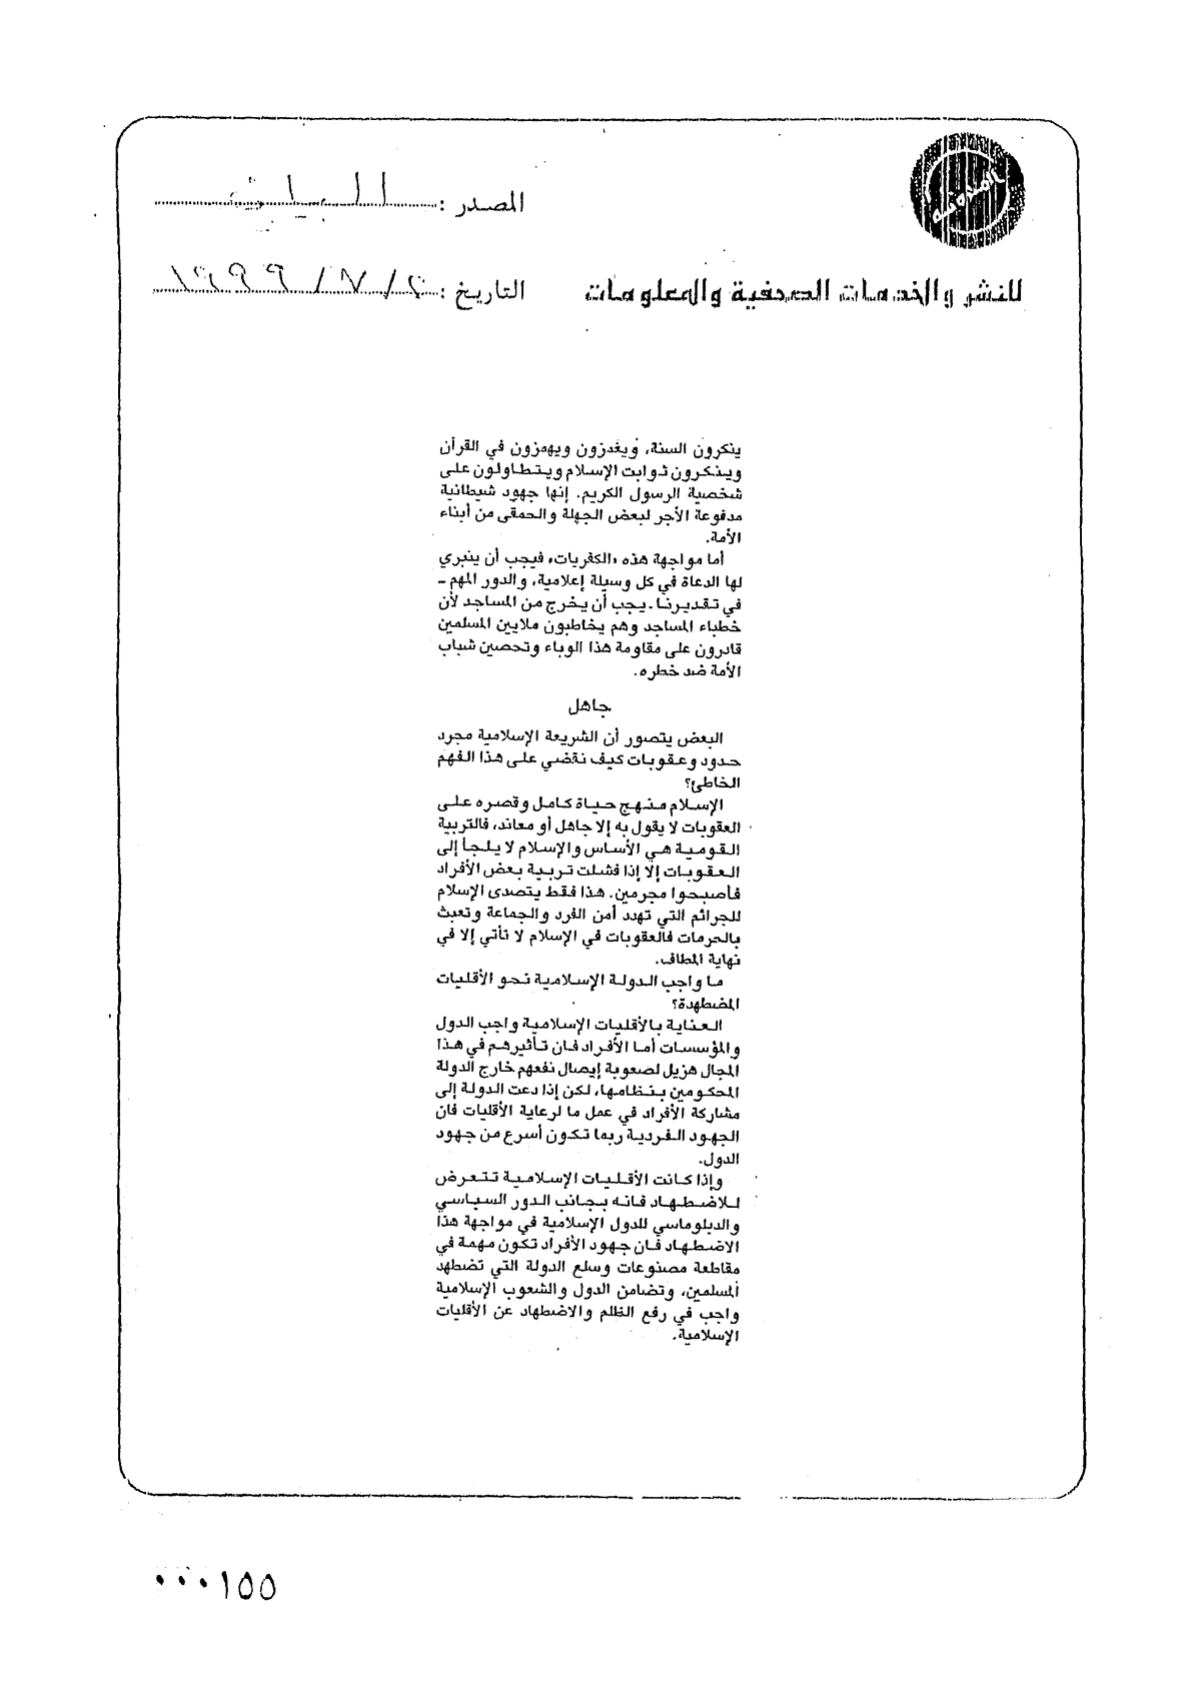 المصدر : البيان
للنشر والخدمات الصحفية والمعلومات
التاريخ : ٢ / ٧ / ١٩٩٩
ينكرون السنة، ويغمزون ويهمزون في القرآن
وينكرون ثوابت الإسلام ويتطاولون على
شخصية الرسول الكريم. إنها جهود شيطانية
مدفوعة الأجر لبعض الجهلة والحمقى من أبناء
الأمة.
أما مواجهة هذه «الكفريات» فيجب أن ينبري
لها الدعاة في كل وسيلة إعلامية، والدور المهم -
في تقديرنا - يجب أن يخرج من المساجد لأن
خطباء المساجد وهم يخاطبون ملايين المسلمين
قادرون على مقاومة هذا الوباء وتحصين شباب
الأمة ضد خطره.
جاهل
البعض يتصور أن الشريعة الإسلامية مجرد
حدود وعقوبات كيف نقضي على هذا الفهم
الخاطئ؟
الإسلام منهج حياة كامل وقصره على
العقوبات لا يقول به إلا جاهل أو معاند، فالتربية
القومية هي الأساس والإسلام لا يلجأ إلى
العقوبات إلا إذا فشلت تربية بعض الأفراد
فأصبحوا مجرمين. هذا فقط يتصدى الإسلام
للجرائم التي تهدد أمن الفرد والجماعة وتعبث
بالحرمات فالعقوبات في الإسلام لا تأتي إلا في
نهاية المطاف.
ما واجب الدولة الإسلامية نحو الأقليات
المضطهدة؟
العناية بالأقليات الإسلامية واجب الدول
والمؤسسات أما الأفراد فان تأثيرهم في هذا
المجال هزيل لصعوبة إيصال نفعهم خارج الدولة
المحكومين بنظامها، لكن إذا دعت الدولة إلى
مشاركة الأفراد في عمل ما لرعاية الأقليات فان
الجهود الفردية ربما تكون أسرع من جهود
الدول.
وإذا كانت الأقليات الإسلامية تتعرض
للاضطهاد فانه بجانب الدور السياسي
والدبلوماسي للدول الإسلامية في مواجهة هذا
الاضطهاد فان جهود الأفراد تكون مهمة في
مقاطعة مصنوعات وسلع الدولة التي تضطهد
المسلمين، وتضامن الدول والشعوب الإسلامية
واجب في رفع الظلم والاضطهاد عن الأقليات
الإسلامية.
٠٠٠١٥٥